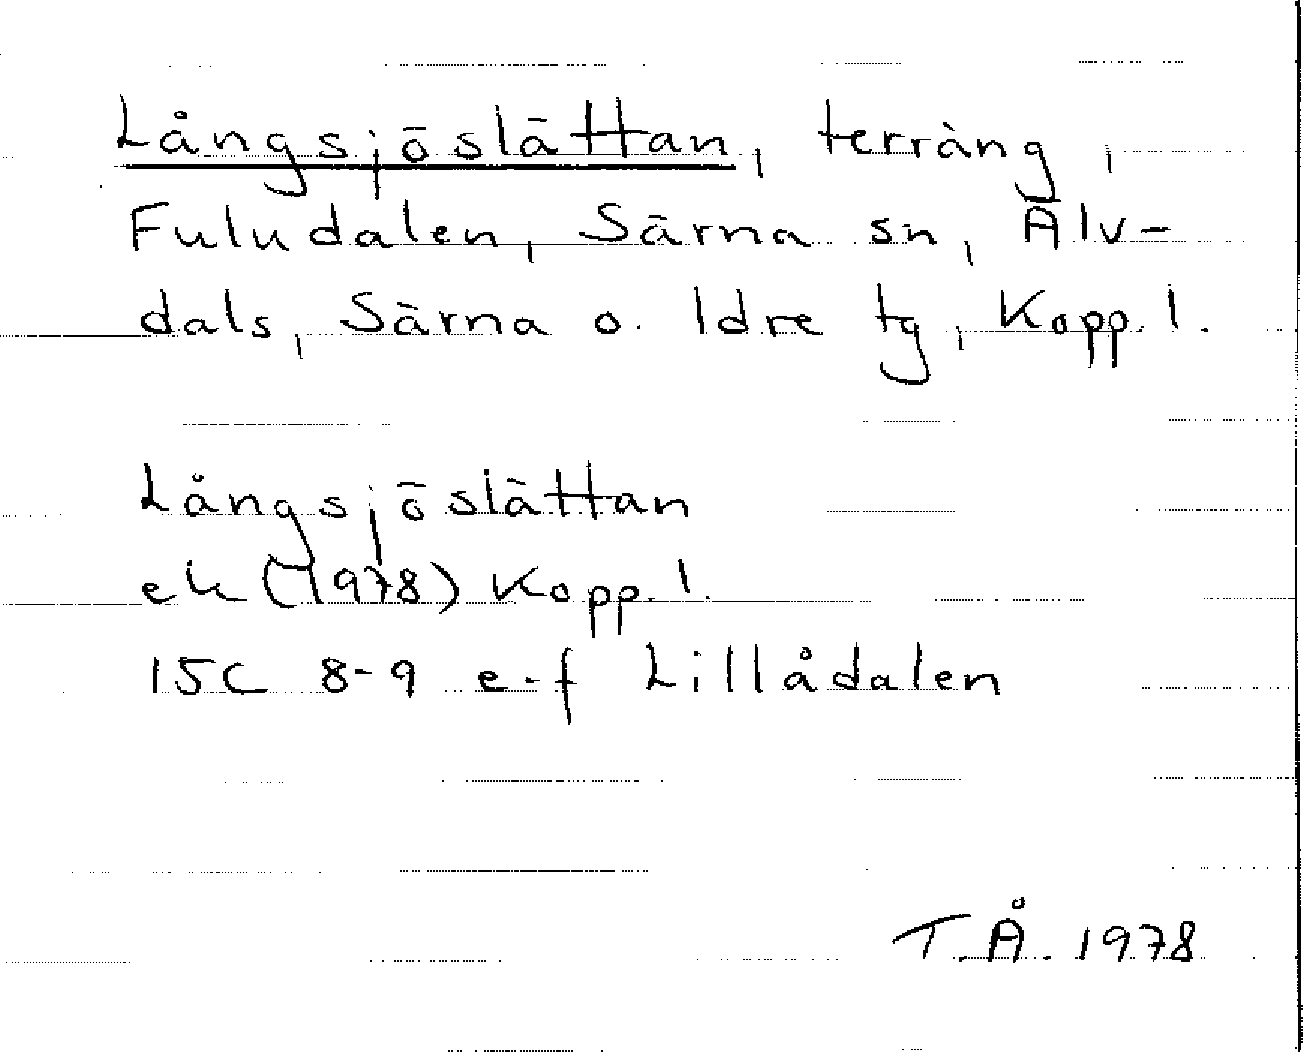 Långsjöslättan, terräng,
Fuludalen, Särna sn, Älv-
dals, Särna o. Idre tg, Kopp. l.
Långsjöslättan
ek (1978) Kopp. l.
15C 8-9 e-f Lillådalen
T.Å. 1978